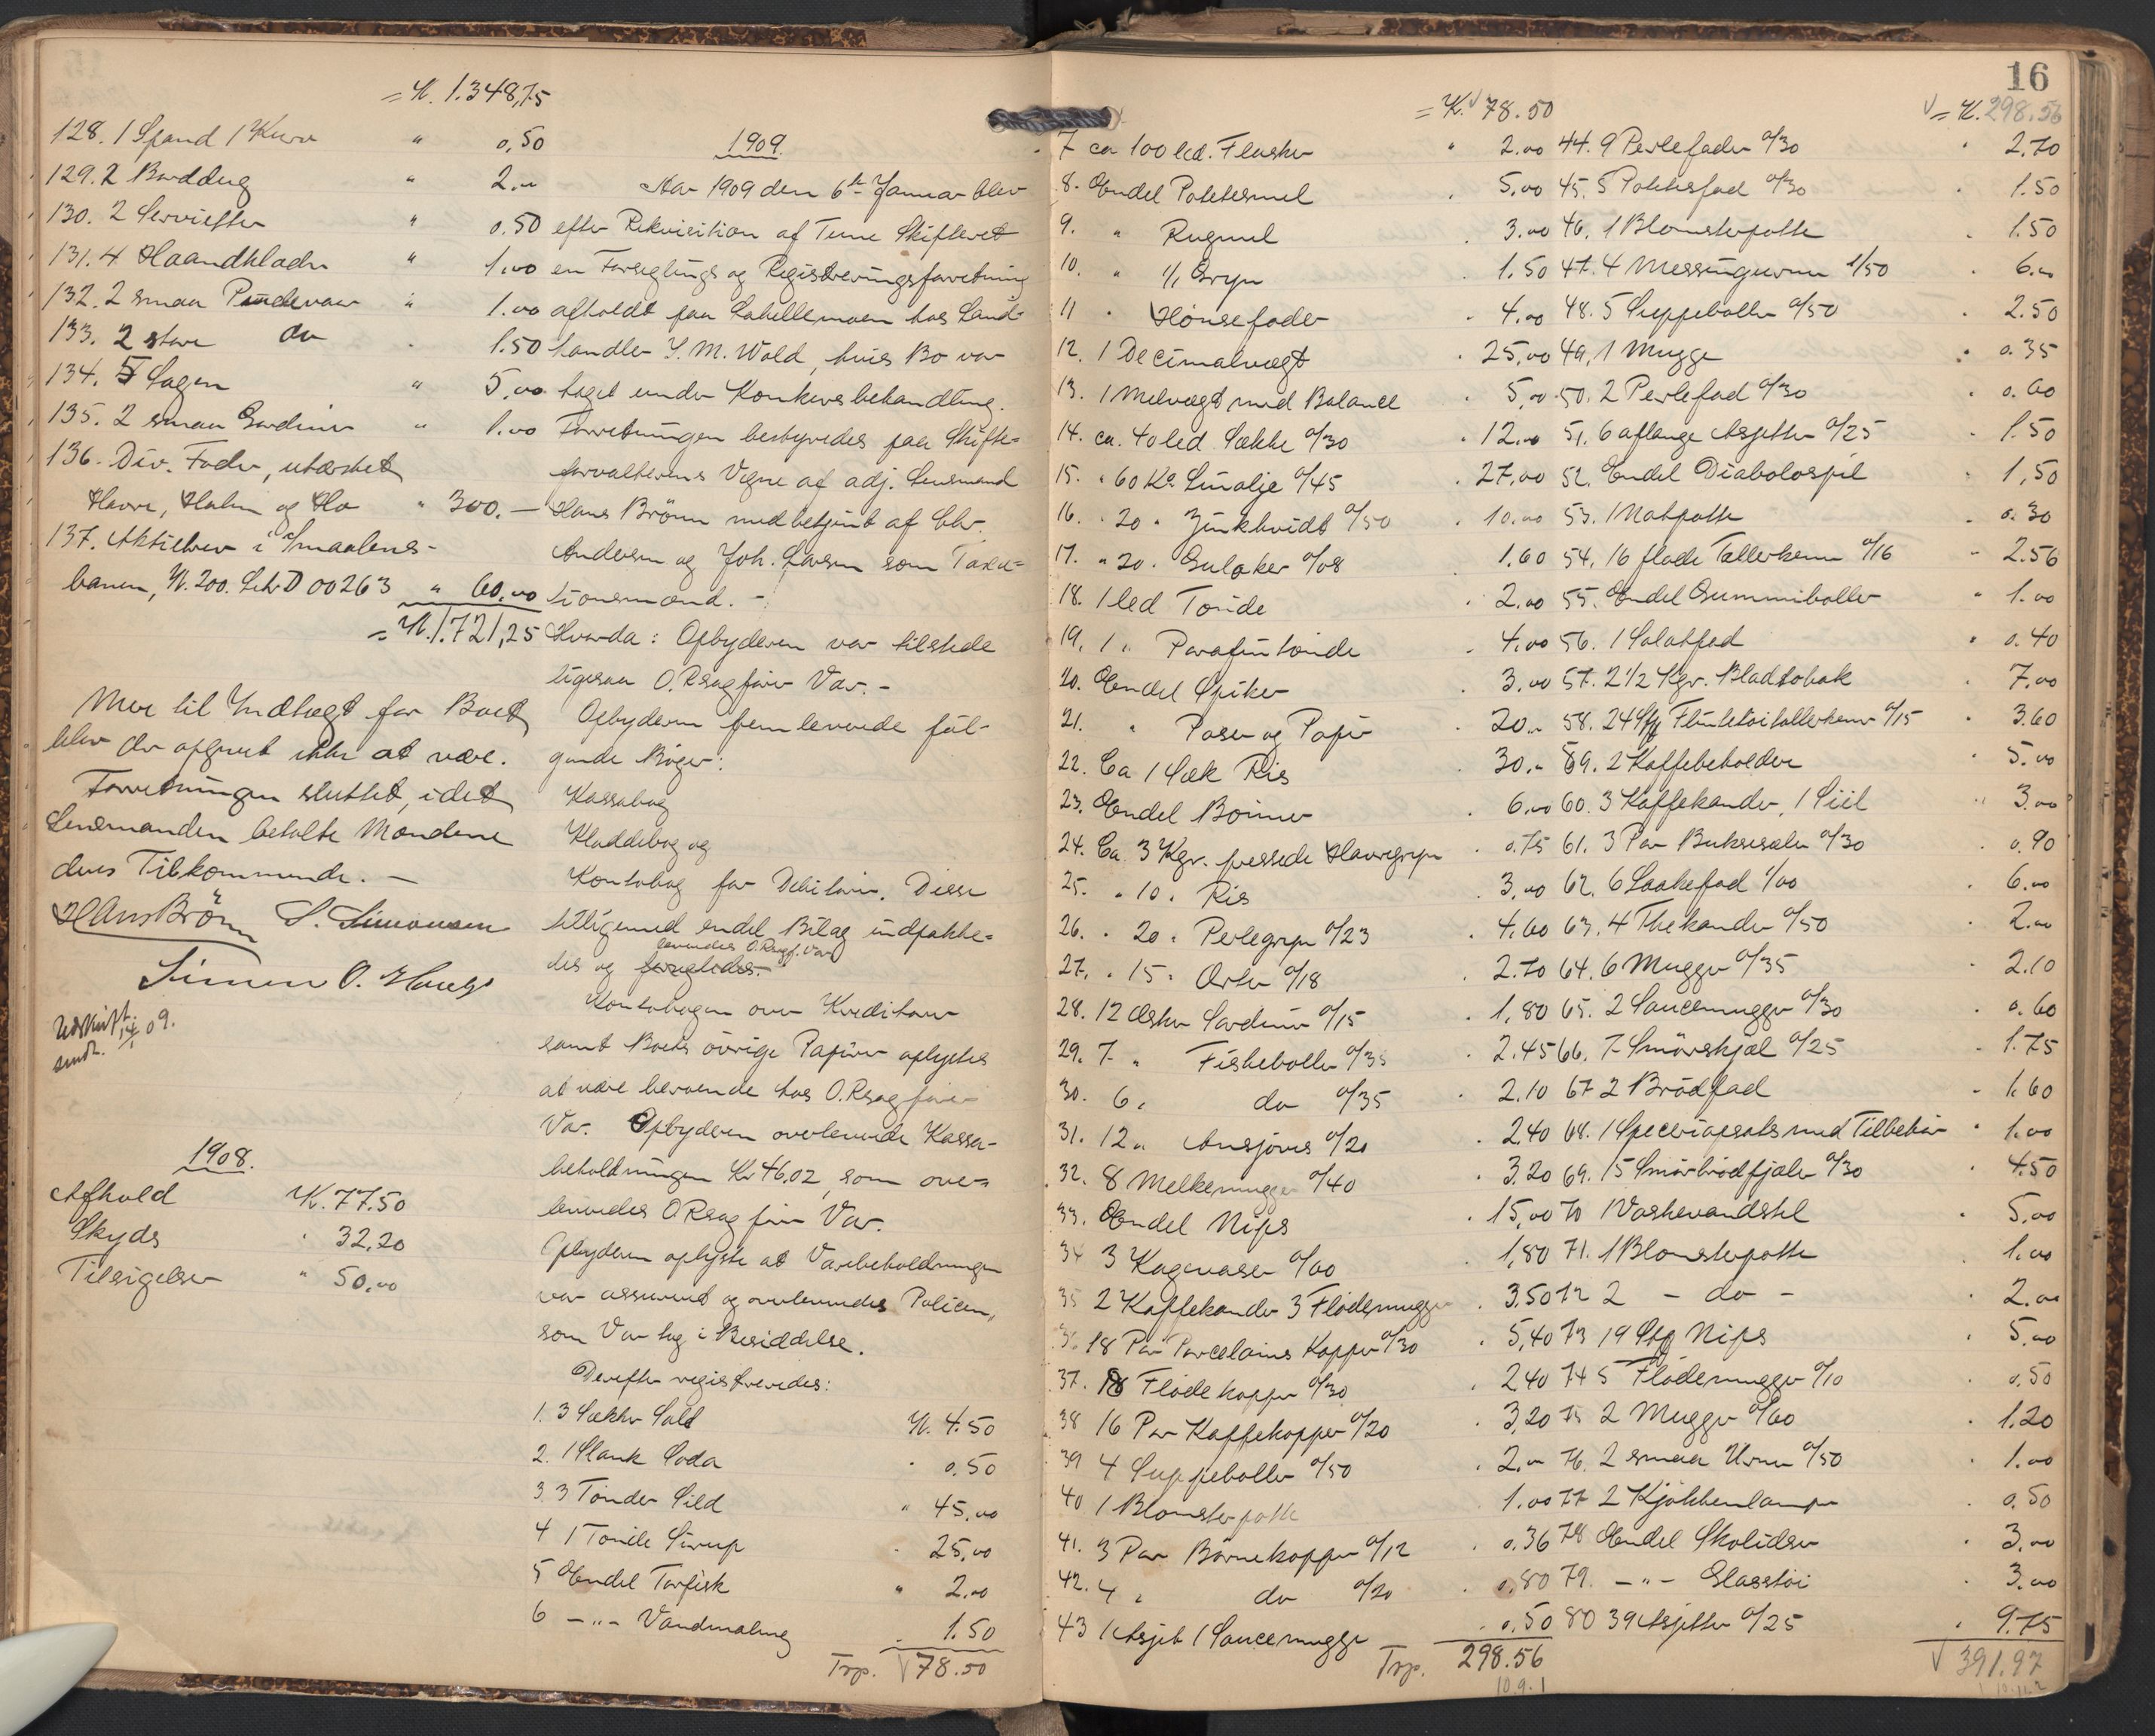 = K. 1.348,75
128. 1 Spand 1 Kurv " 0,50
129. 2 Borddug " 2.00
130. 2 Servietter " 0.50
131. 4 Haandklæder " 1,00
132. 2 smaa Pudevaar " 1.00
133. 2 store do . 1.50
134. 5 Lagen " 5,00
135. 2 smaa Gardiner " 1.00
136. Div. Foder, utærsket
Havre, Halm og Hø " 300.—
137. Aktiebrev i Smaalens-
banen, K. 200. Litr D 00263 " 60,00
= K. 1.721,25
Mere til Indtægt for Boet
blev der opgivet ikke at være.
Forretningen sluttet, idet
Lensmanden betalte Mændene
deres Tilkommende. —
Hans Brönn S. Simonsen
Simen O.
Udskrift
sendt 14/1 09.
1908.
Afhold K. 77.50
Skyds " 32,20
Tilsigelser " 50,00
1909.
Aar 1909 den 6te Januar blev
efter Rekvisition af Tune Skifteret
en Forseglings og Registreringsforretning
afholdt paa Labellemoen hos Land-
handler I. M. Wold, hvis Bo var
taget under Konkursbehandling.
Forretningen bestyredes paa Skifte-
forvalterens Vegne af adj. Lensmand
Hans Brönn med betjent af Chr.
Andersen og Joh. Larsen som Taxa-
tionsmænd. —
Hvorda: Opbyderen var tilstede
ligesaa O.Rsagfører Var. —
Opbyderen fremleverede føl-
gende Bøger:
Kassabog
Kladdebog og
Kontobog for Debitorer. Disse
tilligemed endel Bilag indpakke-
des og forsegledes. leveredes O.Rsagf. Var
Kontobogen over Kreditorer
samt Boets øvrige Papirer oplystes
at være beroende hos O.Rsagfører
Var. Opbyderen overleverede Kassa-
beholdningen Kr 46.02, som over-
leveredes O.Rsagfører Var.
Opbyderen oplyste at Varebeholdningen
var assureret og overleveredes Policen,
som Var tog i Besiddelse.
Derefter registreredes:
1. 3 Sække Salt K. 4.50
2. 1 Slank Soda . 0.50
3. 3 Tønder Sild " 45,00
4 1 Tønde Sirup . 25,00
5 Endel Tørfisk " 2.00
6 —"— Vandmaling . 1.50
Trp. 78.50
16
= K. 78.50
7 ca 100 led. Flasker " 2.00
8. Endel Potetesmel . 5,00
9. " Rugmel . 3.00
10. " 1/1 Gryn . 1.50
11 " Hønsefoder . 4.00
12. 1 Decimalvægt . 25,00
13. 1 Melvægt med Balance . 5,00
14. ca. 40 led Sække a/30 . 12.00
15. " 60 Ko Linolje a/45 . 27,00
16. " 20 " Zinkhvidt a/50 . 10.00
17. " 20 . Guloker a/08 1.60
18. 1 led Tønde . 2.00
19. 1 " Parafintønde . 4,00
20. Endel Spiker . 3.00
21. " Poser og Papir . 20.00
22. Ca 1 Sæk Ris . 30.00
23. Endel Bønner . 6,00
24. Ca 3 Kgr. pressede Havregryn . 0.75
25. " 10 " Ris . 3,00
26. " 20 " Perlegryn a/23 . 4,60
27. " 15 " Erter a/18 . 2.70
28. 12 Æsker Sardiner a/15 . 1,80
29. 7 " Fiskeboller a/35 . 2.45
30. 6 " do a/35 . 2.10
31. 12 " Ansjovis a/20 . 2.40
32. 8 Melkemugger a/40 . 3.20
33. Endel Nips . 15,00
34 3 Kagevaser a/60 . 1,80
35 2 Kaffekander 3 Flødemugger . 3.50
36 18 Par Porcelains Kopper a/30 . 5,40
37. 18 Flødekopper a/30 . 2.40
38 16 Par Kaffekopper a/20 . 3,20
39 4 Suppeboller a/50 . 2.00
40 1 Blomsterpotte . 1.00
41. 3 Par Børnekopper a/12 . 0.36
42. 4 " do a/20 . 0,80
43 1 Asjet 1 Saucemugge . 0.50
Trp. 298.56
10.9.1
= K. 298.56
44. 9 Perlefade a/30 . 2.70
45. 5 Potetesfad a/30 . 1.50
46. 1 Blomsterpotte . 1.50
47. 4 Messingurner 1/50 . 6.00
48. 5 Suppeboller a/50 . 2.50
49, 1 Mugge . 0.35
50. 2 Perlefad a/30 . 0.60
51. 6 aflange Asjetter a/25 . 1.50
52. Endel Diabolospil . 1,50
53. 1 Matpotte . 0.30
54, 16 flade Tallerkener a/16 . 2.56
55. Endel Gummiboller " 1.00
56. 1 Salatfad " 0.40
57. 2 1/2 Kgr. Bladtobak . 7.00
58. 24 Stk Flinttøitallerkener a/15 . 3.60
59. 2 Kaffebeholdere . 5.00
60. 3 Kaffekander, 1 Siil " 3.00
61. 3 Par Buksesæler a/30 . 0.90
62. 6 Laakefad 1/00 . 6.00
63. 4 Thekander a/50 . 2.00
64. 6 Mugger a/35 . 2.10
65. 2 Saucemugger a/30 . 0.60
66. 7 Smørskjæl a/25 . 1.75
67 2 Brødfad . 1.60
68. 1 Specerigsats med Tilbehør . 1.00
69. 15 Smørbrødfjæler a/30 . 4.50
70 1 Vaskevandstel . 5,00
71. 1 Blomsterpotte . 1.00
72 2 — do — . 2.00
73 19 Stk Nips . 5.00
74 5 Flødemugger a/10 . 0,50
75 2 Mugger a/60 . 1.20
76. 2 smaa Urner a/50 . 1.00
77 2 Kjøkkenlamper . 0.50
78 Endel Skolidser . 3.00
79. —"— Glasstøi . 3.00
80 39 Asjetter a/25 . 9.75
391.97